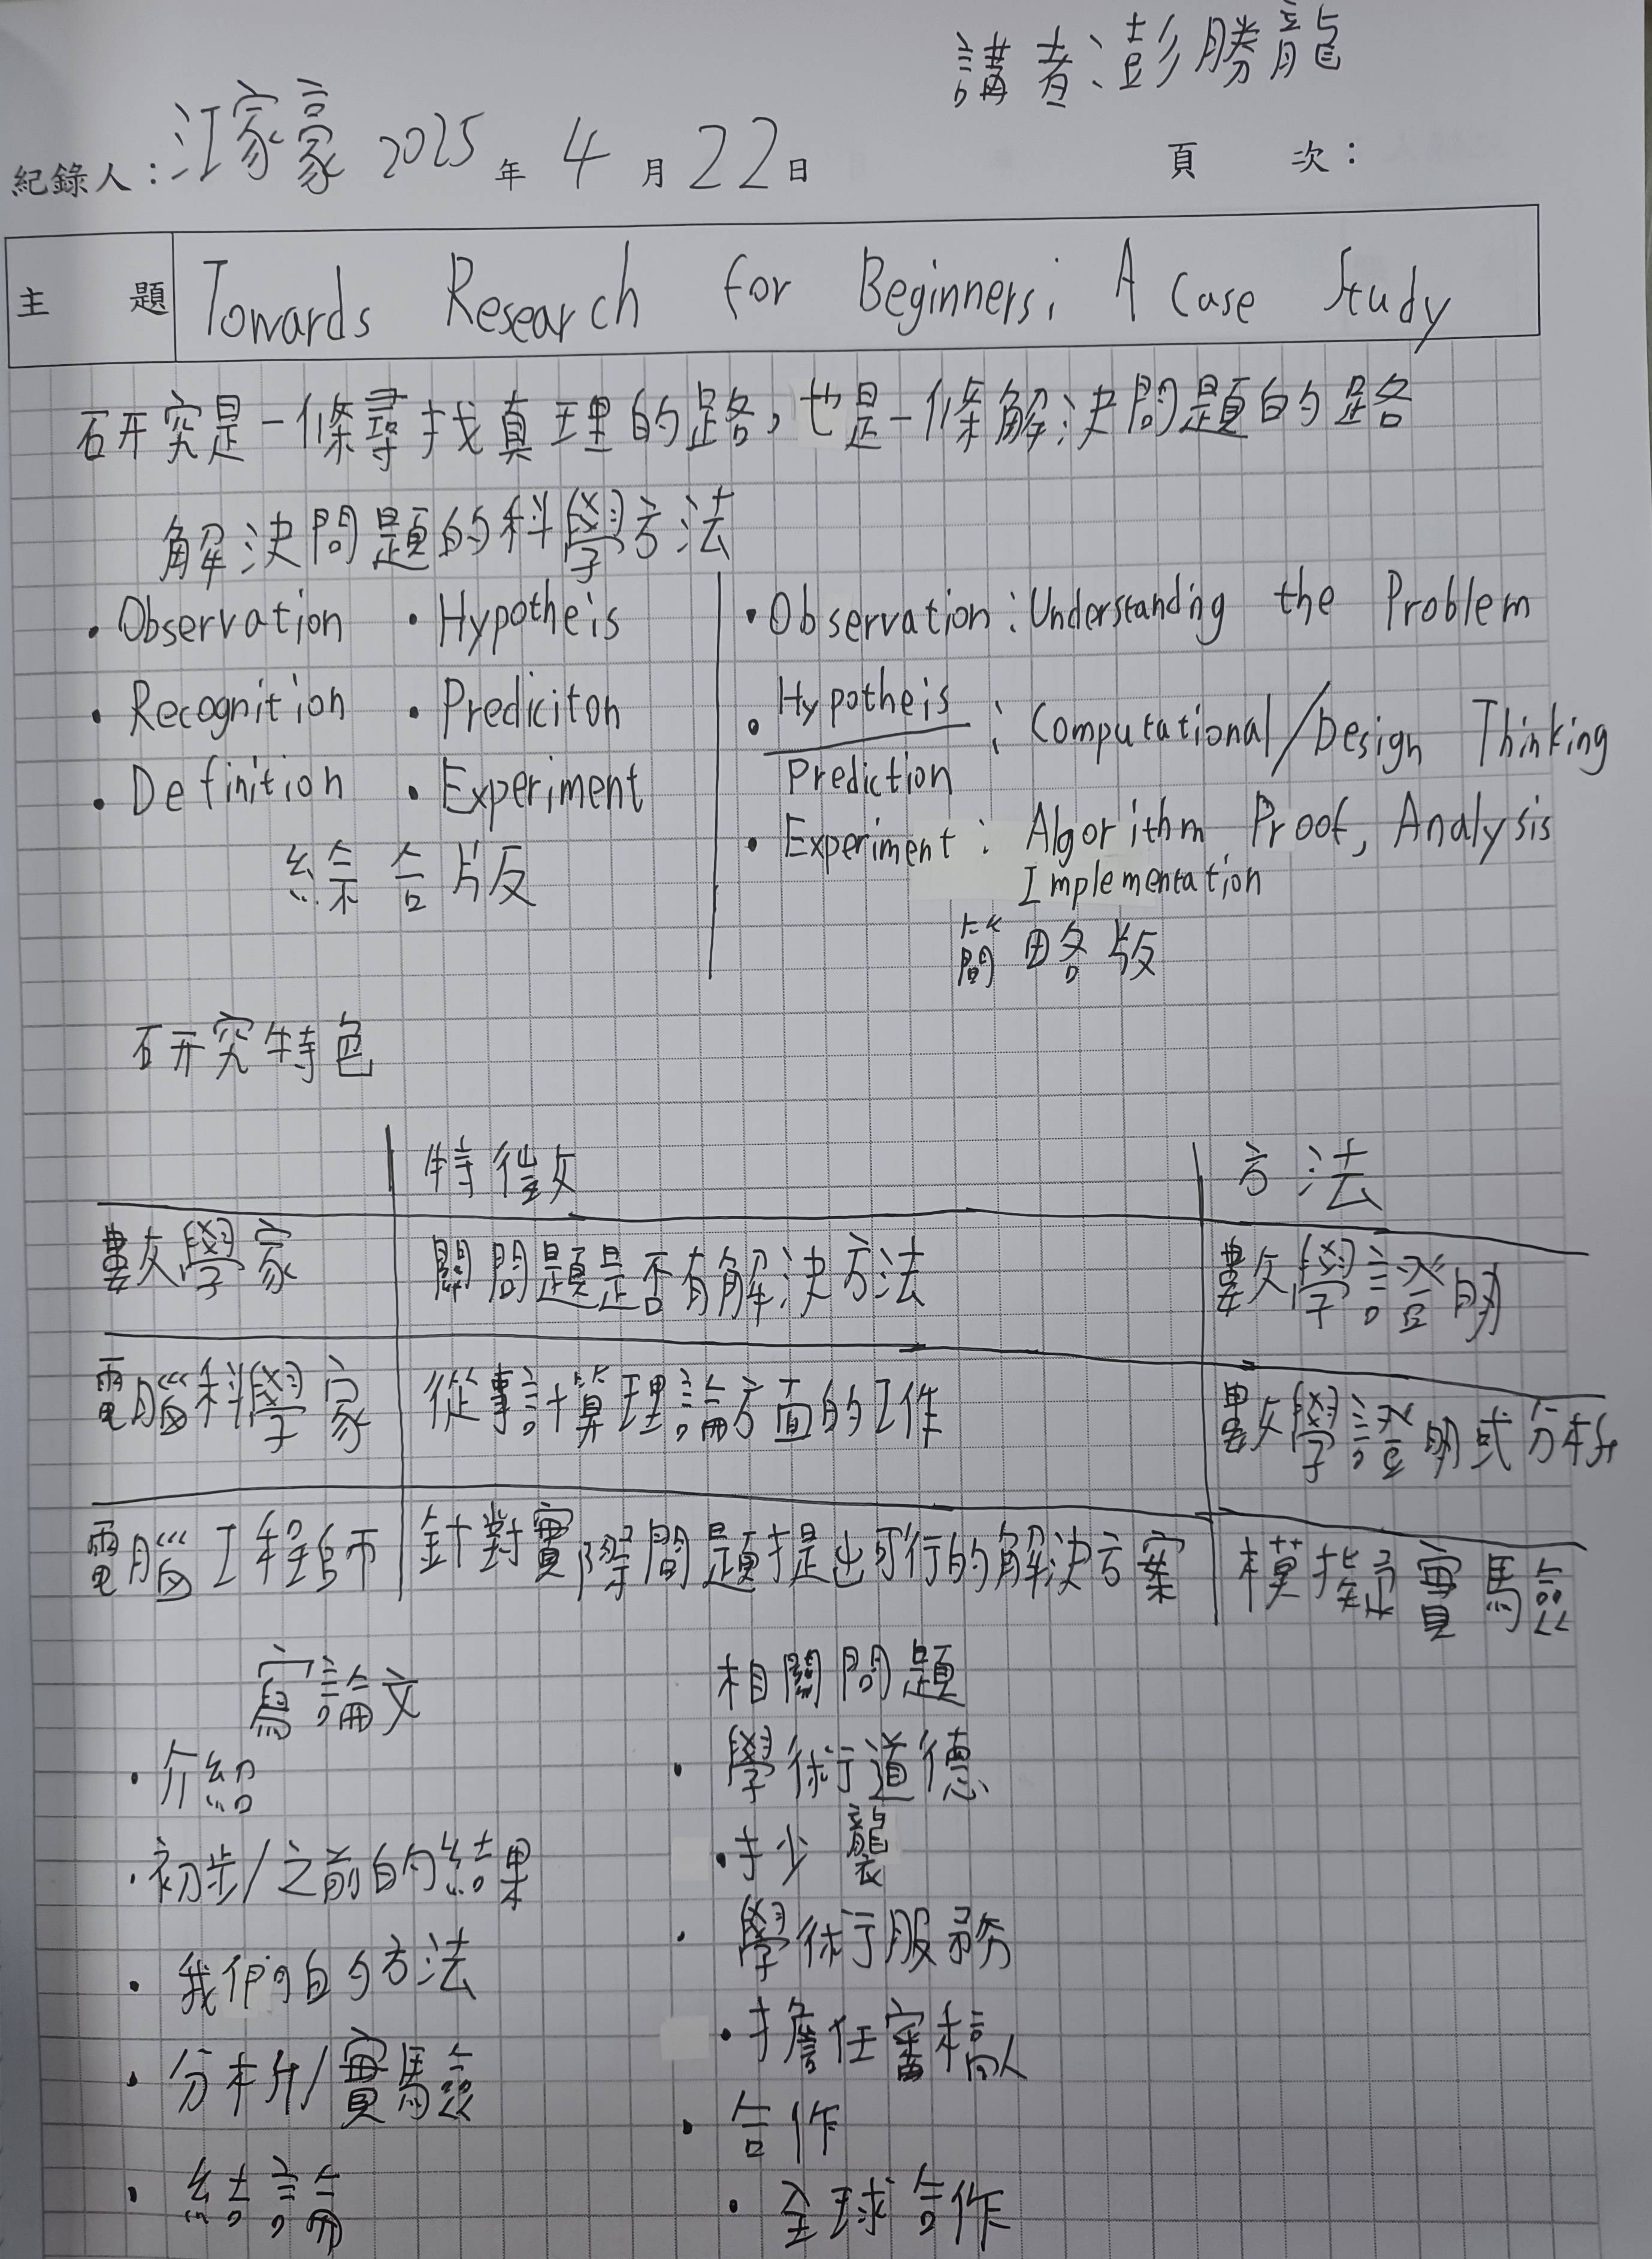 講者:彭勝龍
紀錄人:汪家豪 2025年4月22日 頁 次:
主 題 Towards Research for Beginners: A Case Study
研究是一條尋找真理的路,也是一條解決問題的路
解決問題的科學方法
• Observation • Hypotheis
• Recognition • Prediciton
• Definition • Experiment
綜合版
• Observation: Understanding the Problem
• Hypotheis
Prediction : Computational/Design Thinking
• Experiment: Algorithm Proof, Analysis
Implementation
簡略版
研究特色
特徵 方法
數學家 關問題是否有解決方法 數學證明
電腦科學家 從事計算理論方面的工作 數學證明或分析
電腦工程師 針對實際問題提出可行的解決方案 模擬實驗
寫論文
• 介紹
• 初步/之前的結果
• 我們的方法
• 分析/實驗
• 結論
相關問題
• 學術道德
• 抄襲
• 學術服務
• 擔任審稿人
• 合作
• 全球合作